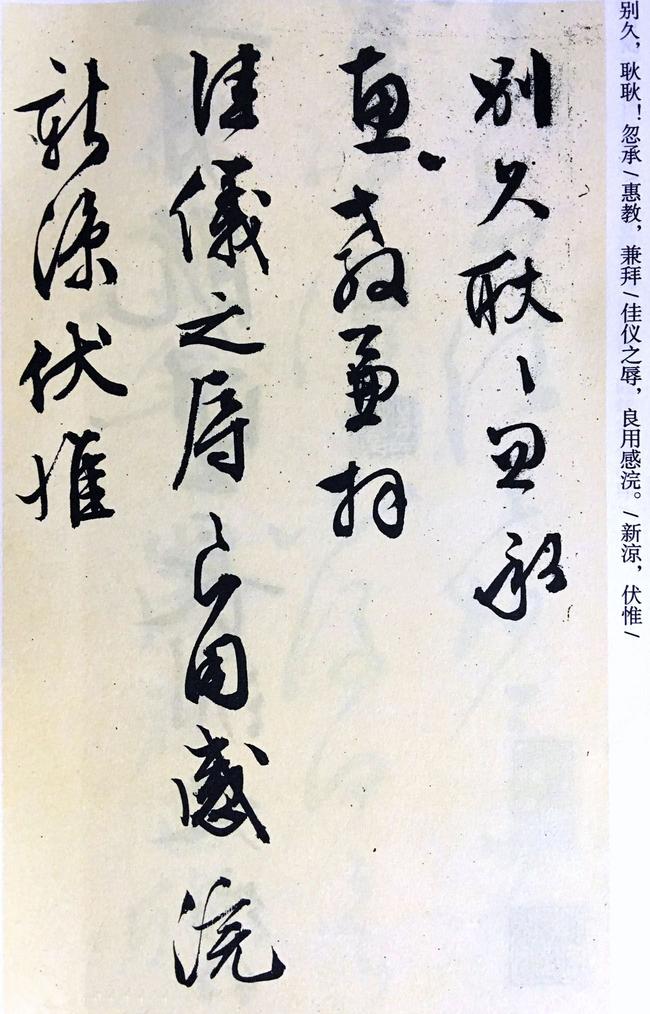 别久，耿耿！忽承/惠教，兼拜/佳仪之辱，良用感浣。/新凉，伏惟/
别久耿〻忽承
惠教兼拜
佳儀之辱良用感浣
新凉伏惟